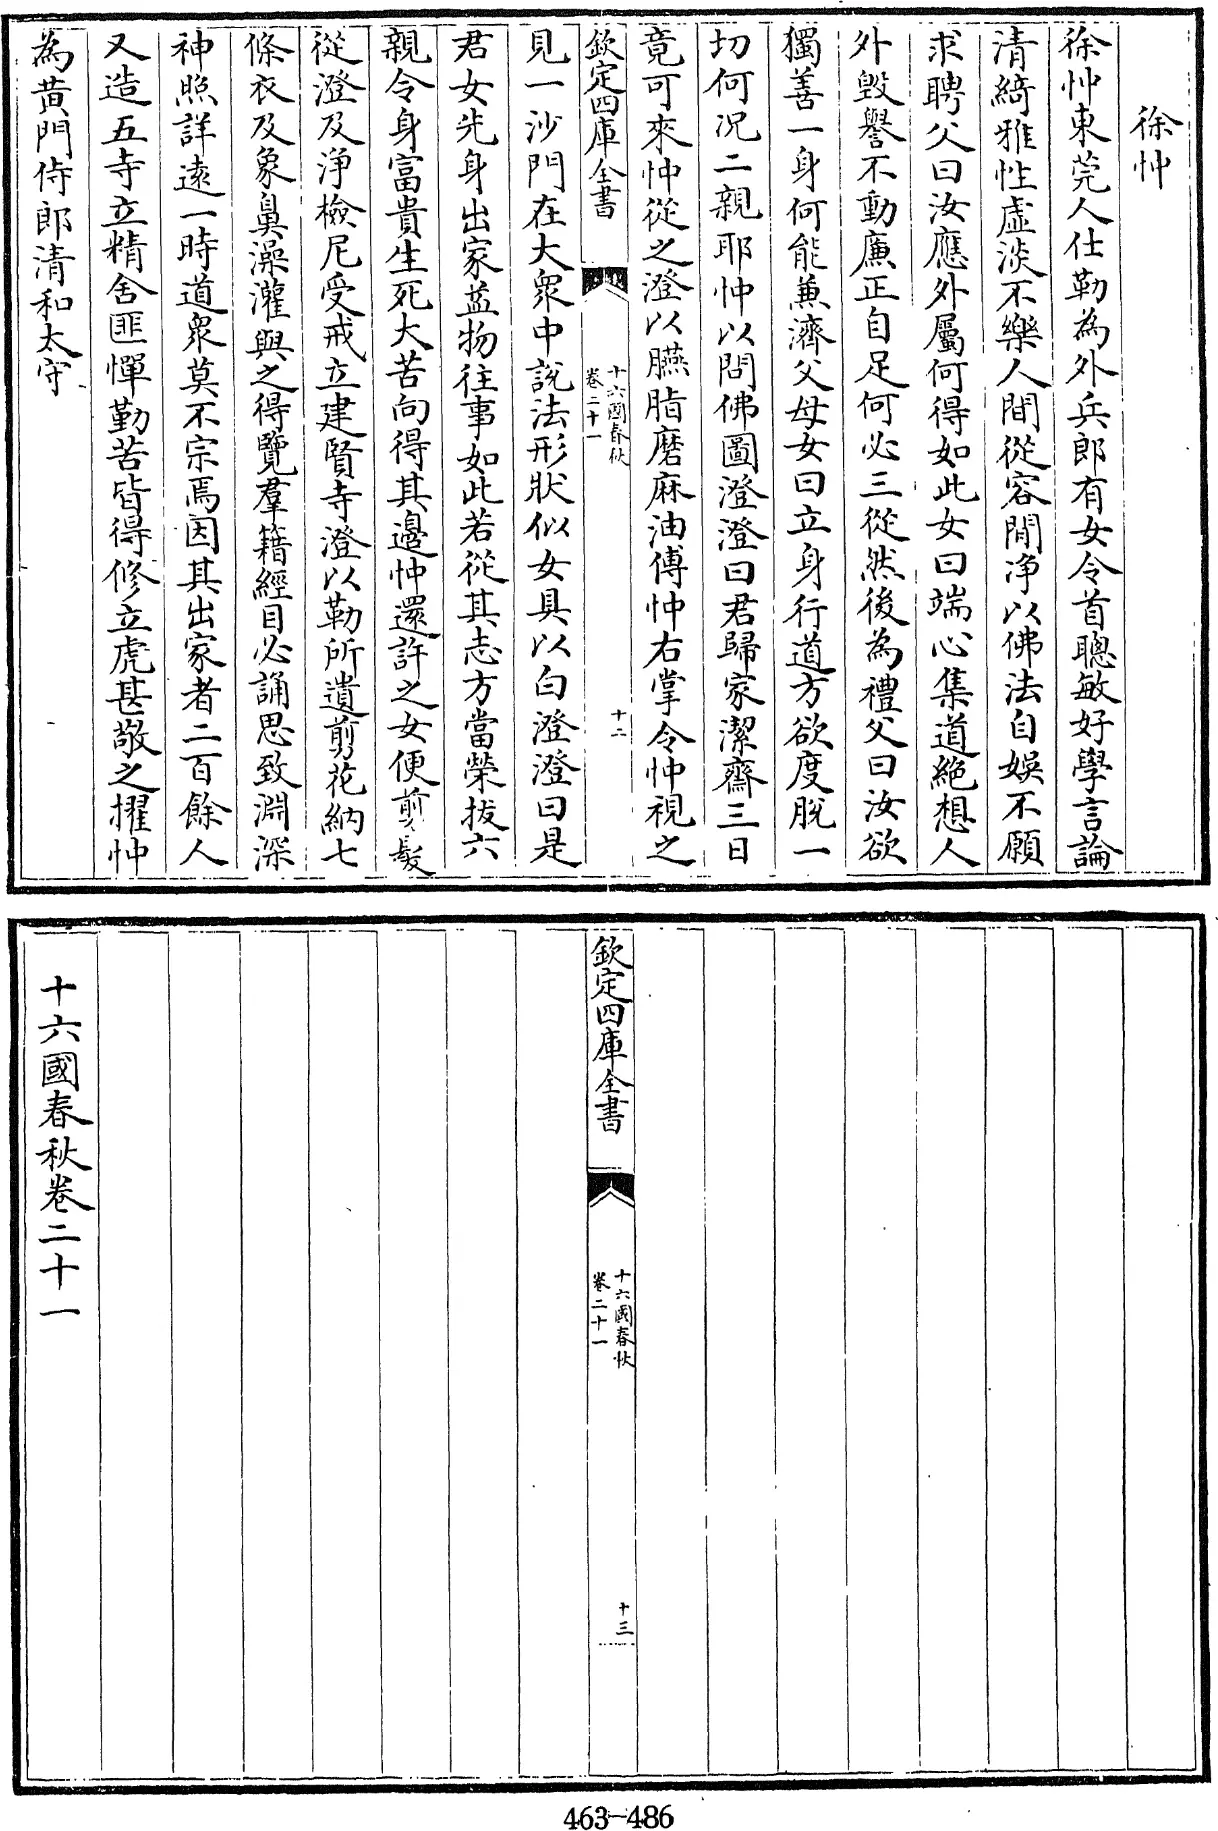 徐忡
徐忡東莞人仕勒為外兵郎有女令首聰敏好學言論
清綺雅性虚淡不樂人間從容閒净以佛法自娱不願
求聘父曰汝應外屬何得如此女曰端心集道絶想人
外毁譽不動廉正自足何必三從然後為禮父曰汝欲
獨善一身何能兼濟父母女曰立身行道方欲度脱一
切何况二親耶忡以問佛圖澄澄曰君歸家潔齋三日
竟可來忡從之澄以臙脂磨麻油傅忡右掌令忡視之
欽定四庫全書
十六國春秋
卷二十一
十二
見一沙門在大衆中説法形狀似女具以白澄澄曰是
君女先身出家益物往事如此若從其志方當榮拔六
親令身富貴生死大苦向得其邉忡還許之女便剪髮
從澄及浄檢尼受戒立建賢寺澄以勒所遺剪花納七
條衣及象鼻澡灌與之得覽羣籍經目必誦思致淵深
神照詳逺一時道衆莫不宗焉因其出家者二百餘人
又造五寺立精舍匪憚勤苦皆得修立虎甚敬之擢忡
為黄門侍郎清和太守
欽定四庫全書
十六國春秋
卷二十一
十三
十六國春秋卷二十一
463-486